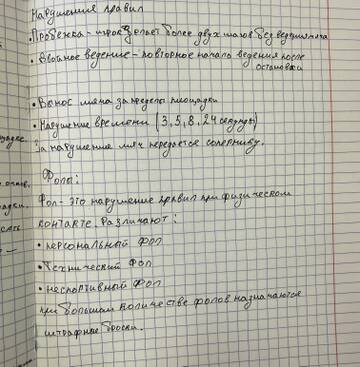 Нарушения правил
• Пробежка – игрок делает более двух шагов без ведения мяча
• Двойное ведение – повторное начало ведения после
остановки
• Вынос мяча за пределы площадки
• Нарушение времени (3, 5, 8, 24 секунды)
За нарушение мяч передается сопернику.
Фолы:
Фол – это нарушение правил при физическом
контакте. Различают:
• персональный фол
• технический фол
• неспортивный фол
При большом количестве фолов назначаются
штрафные броски.